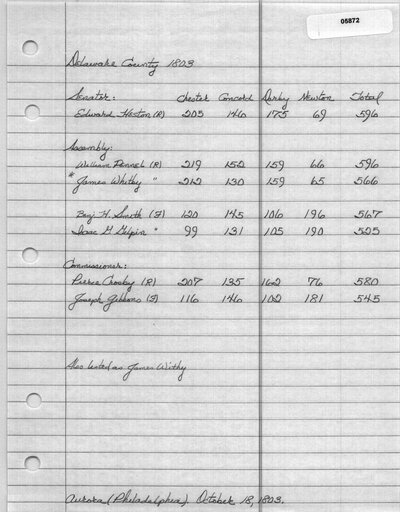 05872
Delaware County 1803
Senator: Chester Concord Darby Newton Total
Edward Heston (R) 205 146 175 69 596
Assembly:
William Pennel (R) 219 152 159 66 596
* James Whitby " 212 130 159 65 566
Benj. H. Smith (F) 120 145 106 196 567
Isaac G. Gilpin " 99 131 105 190 525
Commissioner:
Pierce Crosby (R) 207 135 162 76 580
Joseph Gibbons (F) 116 146 102 181 545
Also listed as James Withy
Aurora (Philadelphia). October 18, 1803.